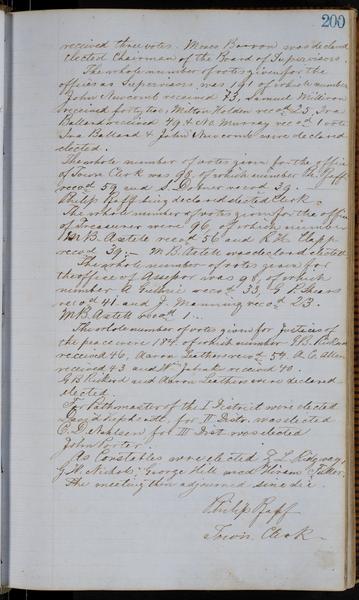 200
received three votes. Moses Barron was declared
elected Chairman of the Board of Supervisors.
The whole number of votes given for the
office as Supervisors, was 191 of which number
John Newcomb received 73, Samuel
received forty two, Milton Holden recod 25, Ira
Ballard received 49 & Mc Murray recod 1 vote
Ira Ballard & John Newcomb were declared
elected.
The whole number of votes given for the office
of Town Clerk was 98, of which number Ph. Raff
recod 59 and S. recod 39.
Philip Raff being declared elected Clerk.
The whole number of votes given for the office
of Treasurer were 96, of which number
M. B. Axtell recod 56 and R. H. Clapp
recod 39. M. B. Axtell was declared elected
The whole number of votes given for
the office of Assessor was 98 of which
A. Guthrie recod 33, G. P. Shears
recod 41 and J. Manning recod 23.
M B Axtell recod 1.
The whole number of votes given for Justices of
the peace were 184 of which number G. B. Rickard
received 46, Aaron Leathers recod 54, A. C. Allen
received 43 and Wm received 40.
G B Rickard and Aaron Leathers were declared
elected
For Pathmaster of the I District were elected
David for II Distr. was elected
C. D. for III Dist was elected
John Porter.
As Constables were elected T. L. Ridgway,
G. H. Nichols, George Hill and Hiram Tucker.
The meeting then adjourned sine die
Philip Raff
Town Clerk